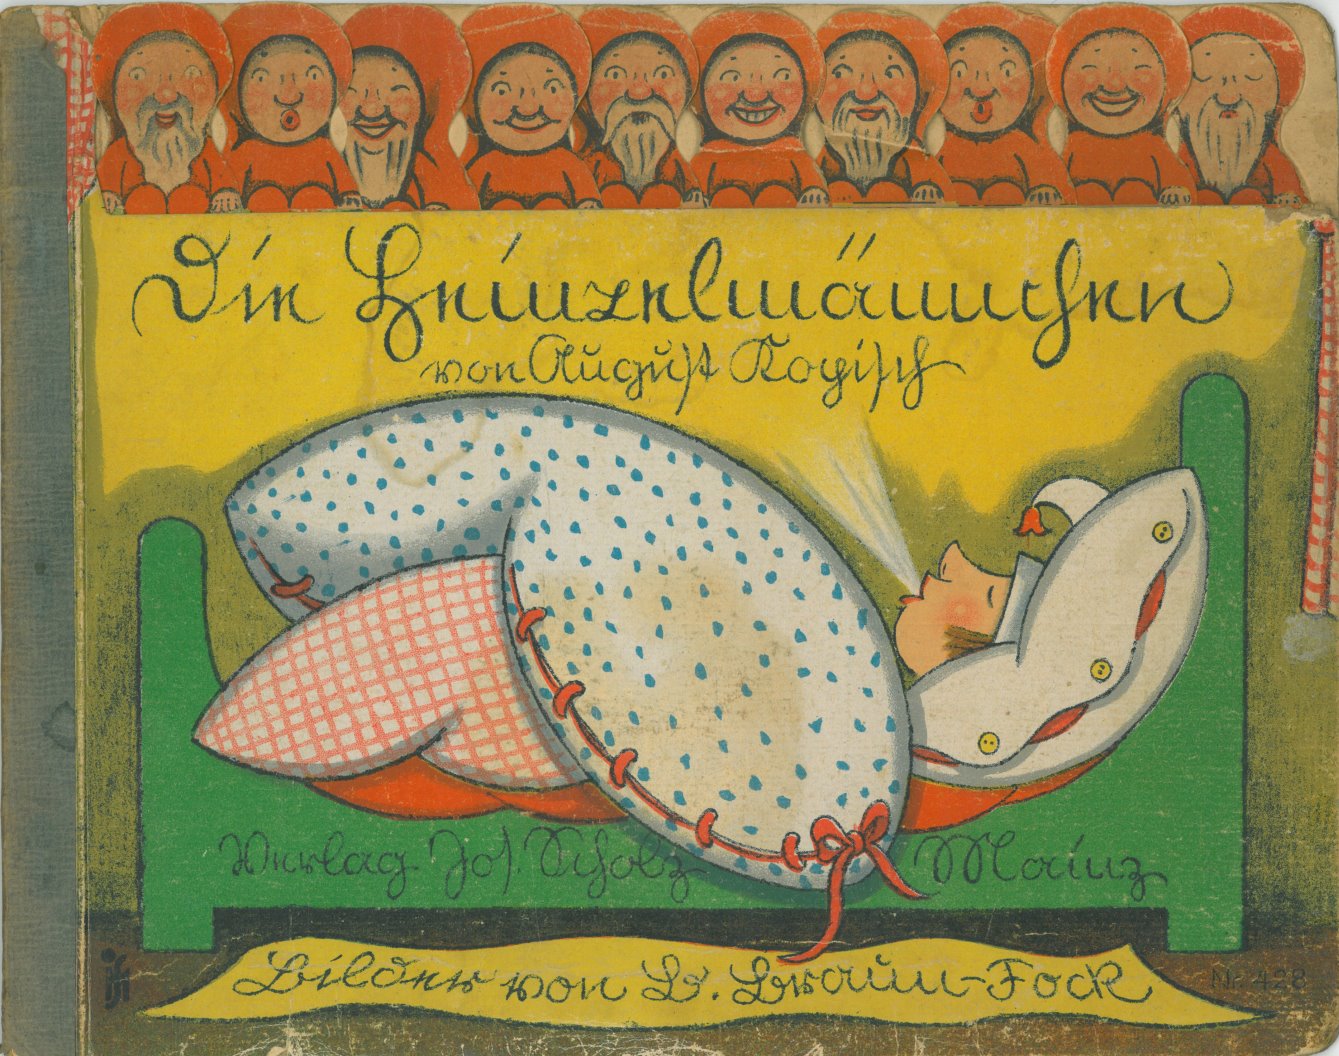 Die Heinzelmännchen
von August Kopisch
Verlag Jos. Scholz Mainz
Bilder von B. Braun-Fock
Nr. 428